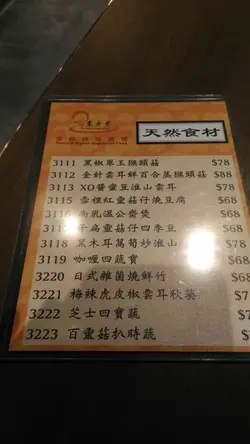 天然食材
3111 黑椒單玉猴頭菇 $78
3112 金針雲耳鮮百合蒸猴頭菇 $88
3113 XO醬靈豆淮山雲耳 $78
3115 雪裡紅靈菇仔燒豆腐 $68
3116 南乳溫公齋煲 $68
3117 干扁靈菇仔四季豆 $68
3118 黑木耳萵筍炒淮山 $78
3119 咖喱四蔬寶 $68
3220 日式雜菌燒鮮竹 $68
3221 梅辣虎皮椒雲耳秋葵
3222 芝士四寶蔬
3223 百靈菇扒時蔬